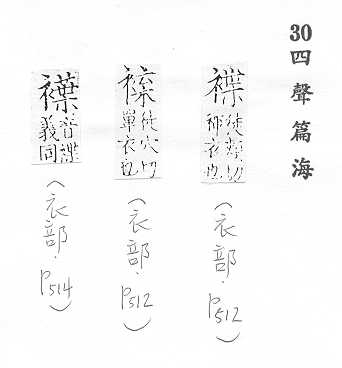 30四聲篇海
褋徒頰切
衣也
(衣部.P512)
徒穴切
單衣也
(衣部.P512)
音諜
義同
(衣部.P514)